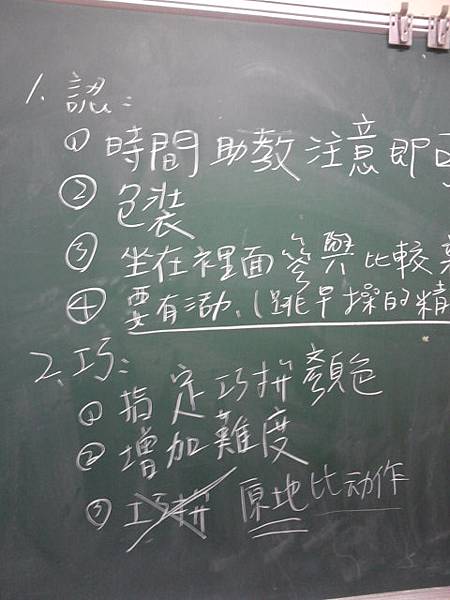 1. 認:
① 時間助教注意即可
② 包裝
③ 坐在裡面參與比較
④ 要有活動(跳早操的精
2. 巧:
① 指定巧拼顏色
② 增加難度
③ 巧拼 原地比动作